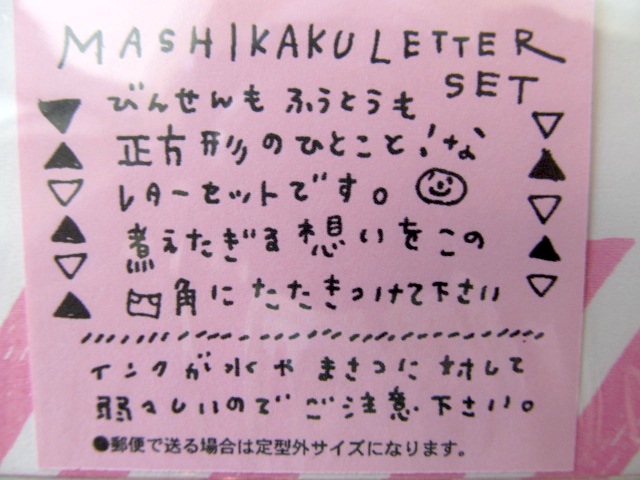 MASHIKAKU LETTER
SET
びんせんも ふうとうも
正方形のひとこと！な
レターセットです。
煮えたぎる想いをこの
四角にたたきつけて下さい
インクが水やまさつに対して
弱々しいのでご注意下さい。
●郵便で送る場合は定型外サイズになります。